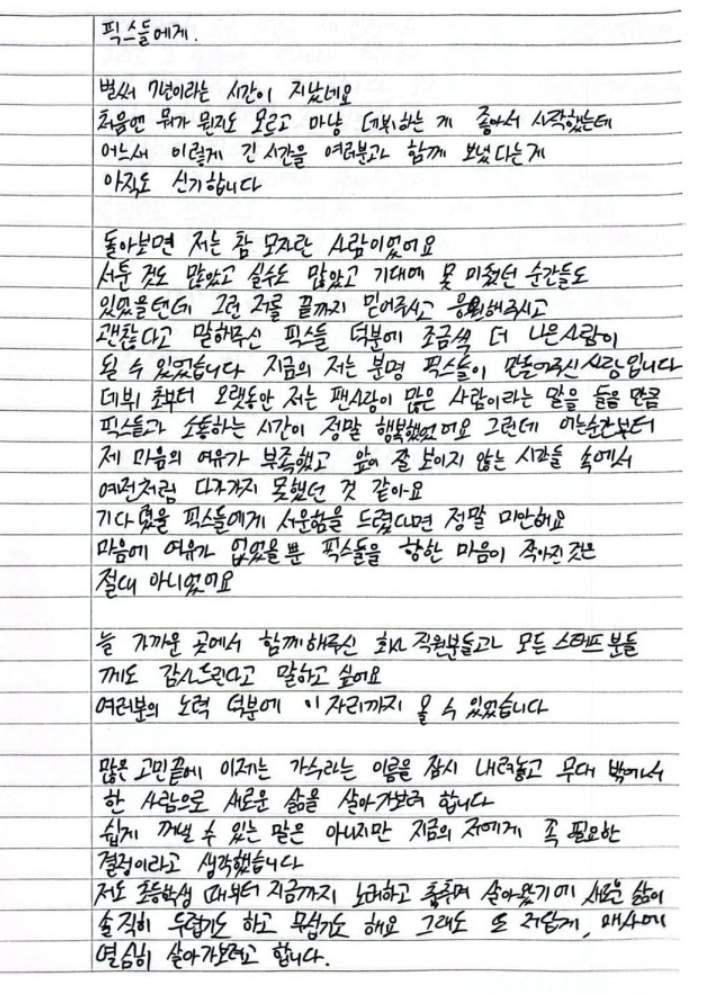 픽스들에게.
벌써 7년이라는 시간이 지났네요
처음엔 뭐가 뭔지도 모르고 마냥 데뷔하는 게 좋아서 시작했는데
어느새 이렇게 긴 시간을 여러분과 함께 보냈다는게
아직도 신기합니다
돌아보면 저는 참 모자란 사람이었어요
서툰 것도 많았고 실수도 많았고 기대에 못 미쳤던 순간들도
있었을텐데 그런 저를 끝까지 믿어주시고 응원해주시고
괜찮다고 말해주신 픽스들 덕분에 조금씩 더 나은사람이
될 수 있었습니다 지금의 저는 분명 픽스들이 만들어주신 사랑입니다
데뷔 초부터 오랫동안 저는 팬사랑이 많은 사람이라는 말을 들을 만큼
픽스들과 소통하는 시간이 정말 행복했었어요 그런데 어느순간부터
제 마음의 여유가 부족했고 앞이 잘 보이지 않는 시간들 속에서
예전처럼 다가가지 못했던 것 같아요
기다렸을 픽스들에게 서운함을 드렸다면 정말 미안해요
마음에 여유가 없었을 뿐 픽스들을 향한 마음이 작아진것은
절대 아니었어요
늘 가까운 곳에서 함께해주신 회사 직원분들과 모든 스태프분들
께도 감사드린다고 말하고 싶어요
여러분의 노력 덕분에 이 자리까지 올 수 있었습니다
많은 고민끝에 이제는 가수라는 이름을 잠시 내려놓고 무대 밖에서
한 사람으로 새로운 삶을 살아가보려 합니다
쉽게 꺼낼 수 있는 말은 아니지만 지금의 저에게 꼭 필요한
결정이라고 생각했습니다
저도 초등학생 때부터 지금까지 노래하고 춤추며 살아왔기에 새로운 삶이
솔직히 두렵기도 하고 무섭기도 해요 그래도 또 저답게, 매사에
열심히 살아가보려고 합니다.